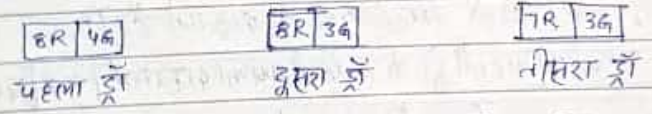 8R 4G 8R 3G 7R 3G
पहला ड्रॉ दूसरा ड्रॉ तीसरा ड्रॉ